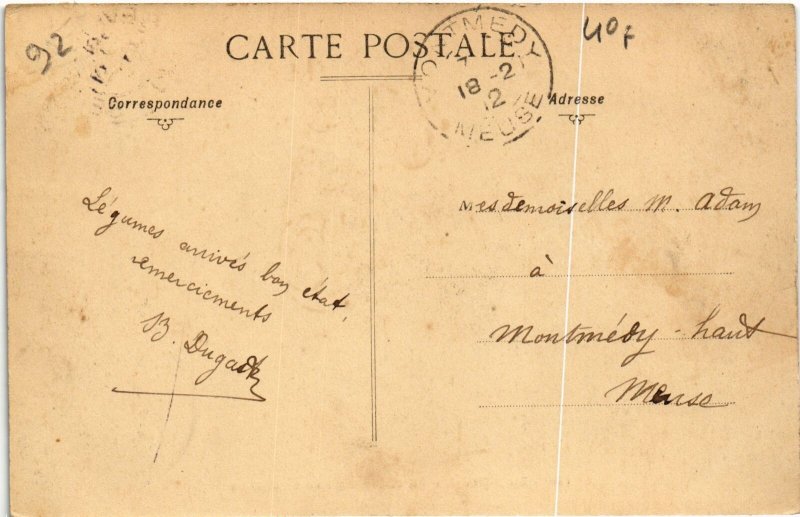 92
40F
CARTE POSTALE
MONTMÉDY
18-2
12
MEUSE
Correspondance
Adresse
Légumes arrivés bon état,
remerciements
B.
Mesdemoiselles M. Adam
à
Montmédy-haut
Meuse